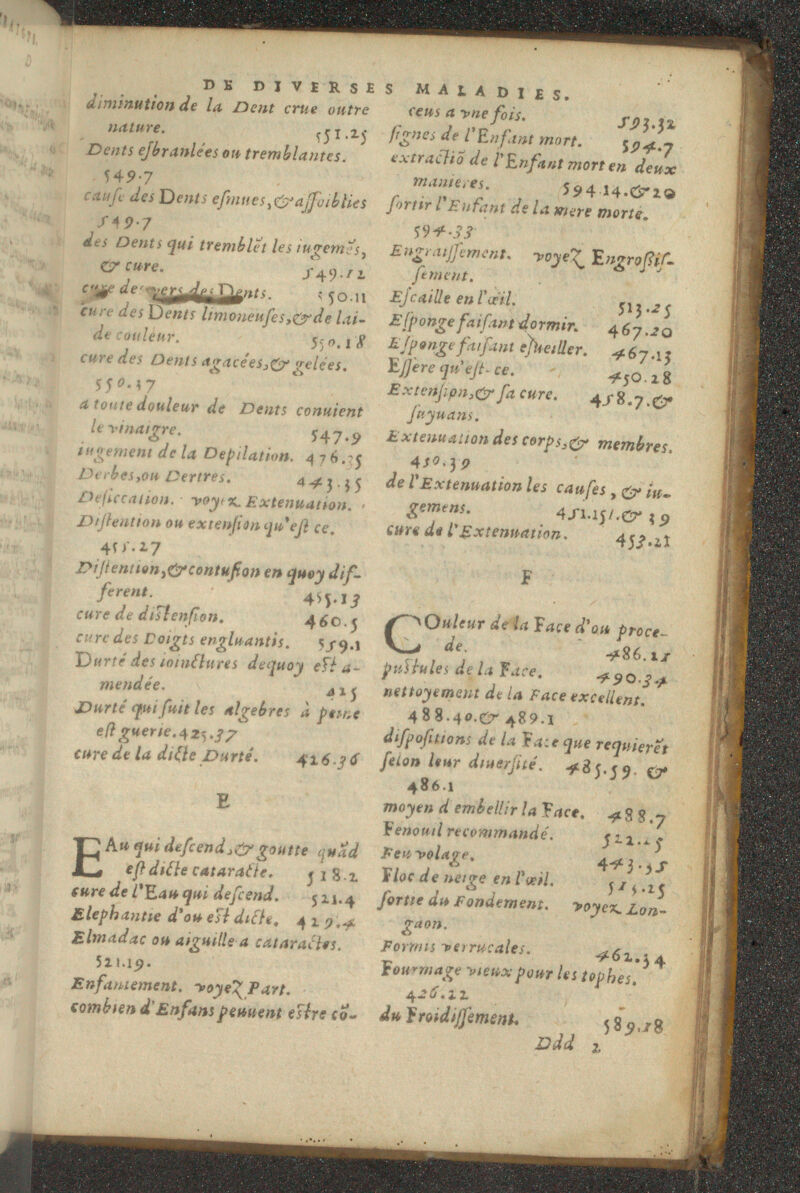 DE DIVERSES MALADIES.
diminution de la Dent crue outre
nature. 551.25
Dents esbranlées ou tremblantes.
549.7
cause des Dents esmues,& affoiblies
549.7
des Dents qui tremblẽt les iugemẽs,
& cure. 549.12
cure de vers des Dents. 550.11
cure des Dents limoneuses,& de lai-
de couleur. 550.18
cure des Dents agacées,& gelées.
550.37
a toute douleur de Dents conuient
le vinaigre. 547.9
iugement de la Depilation. 476.35
Derbes,ou Dertres. 443.35
Desiccation. voyez Extenuation.
Distention ou extension qu'est ce.
455.27
Distention,& contusion en quoy dif-
ferent. 455.13
cure de distension. 460.5
cure des Doigts engluantis. 559.1
Durté des iointtures dequoy est a-
mendée. 425
Durté qui suit les algebres à peine
est guerie. 425.37
cure de la dicte Durté. 426.36
E
EAu qui descend,& goutte quãd
est dicte cataracte. 518.2
cure de l'Eau qui descend. 521.4
Elephantie d'ou est dicte. 429.4
Elmadac ou aiguille a cataractes.
521.19.
Enfantement. voyez Part.
combien d'Enfans peuuent estre cõ-
ceus a vne fois. 593.32
signes de l'Enfant mort. 594.7
extractiõ de l'Enfant mort en deux
manieres. 594 14.& 20
sortir l'Enfant de la mere morte.
594.33
Engraissement. voyez Engrossis-
sement.
Escaille en l'œil. 513.25
Esponge faisant dormir. 467.20
Esponge faisant esueiller. 467.13
Essere qu'est-ce. 450.28
Extension,& sa cure. 458.7.&
suyuans.
Extenuation des corps,& membres.
450.39
de l'Extenuation les causes, & iu-
gemens. 451.15/.& 39
cure de l'Extenuation. 453.21
F
COuleur de la Face d'ou proce-
de. 486.15
pustules de la Face. 490.34
nettoyement de la Face excellent.
488.40.& 489.1
dispositions de la Face que requierẽt
selon leur diuersité. 485.59. &
486.1
moyen d embellir la Face. 488.7
Fenouil recommandé. 522.25
Feu volage. 443.35
Floc de neige en l'œil. 515.25
sortie du Fondement. voyez Lon-
gaon.
Formis verrucales. 462.34
Fourmage vieux pour les tophes.
426.22
du Froidissement. 589.18
Ddd 2